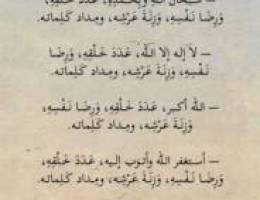 — سبحان الله وبحمده، عَدَدَ خَلْقِهِ،
وَرِضَا نَفْسِهِ، وَزِنَةَ عَرْشِهِ، ومِداد كَلِماته.
— لاَ إله إلا الله، عَدَدَ خَلْقِهِ، وَرِضَا
نَفْسِهِ، وَزِنَةَ عَرْشِهِ، ومِداد كَلِماته.
— الله أكبر، عَدَدَ خَلْقِهِ، وَرِضَا نَفْسِهِ،
وَزِنَةَ عَرْشِه، ومِداد كَلِماتِه.
— أستغفر الله وأتوب إليه، عَدَدَ خَلْقِهِ،
وَرِضَا نَفْسِهِ، وَزِنَةَ عَرْشِهِ، ومِداد كَلِماته.